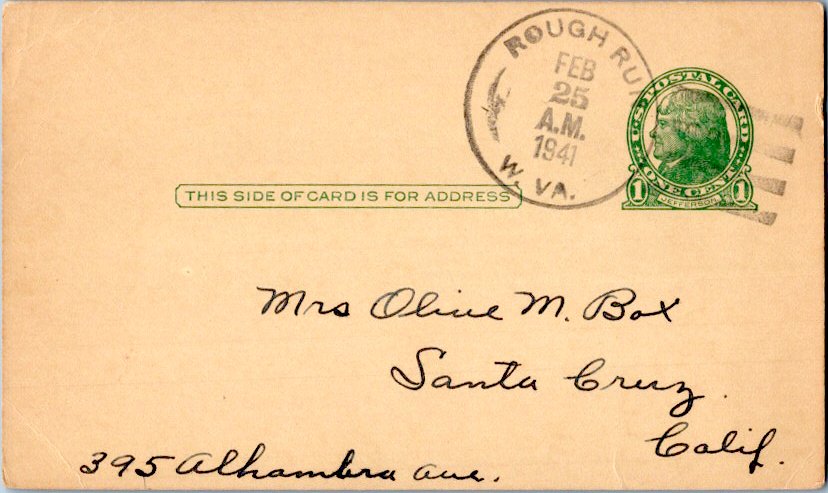 ROUGH RUN
FEB
25
A.M.
1941
W. VA.
U.S. POSTAL CARD
ONE CENT
1 1
JEFFERSON
THIS SIDE OF CARD IS FOR ADDRESS
Mrs Olive M. Box
Santa Cruz
Calif.
395 Alhambra ave.